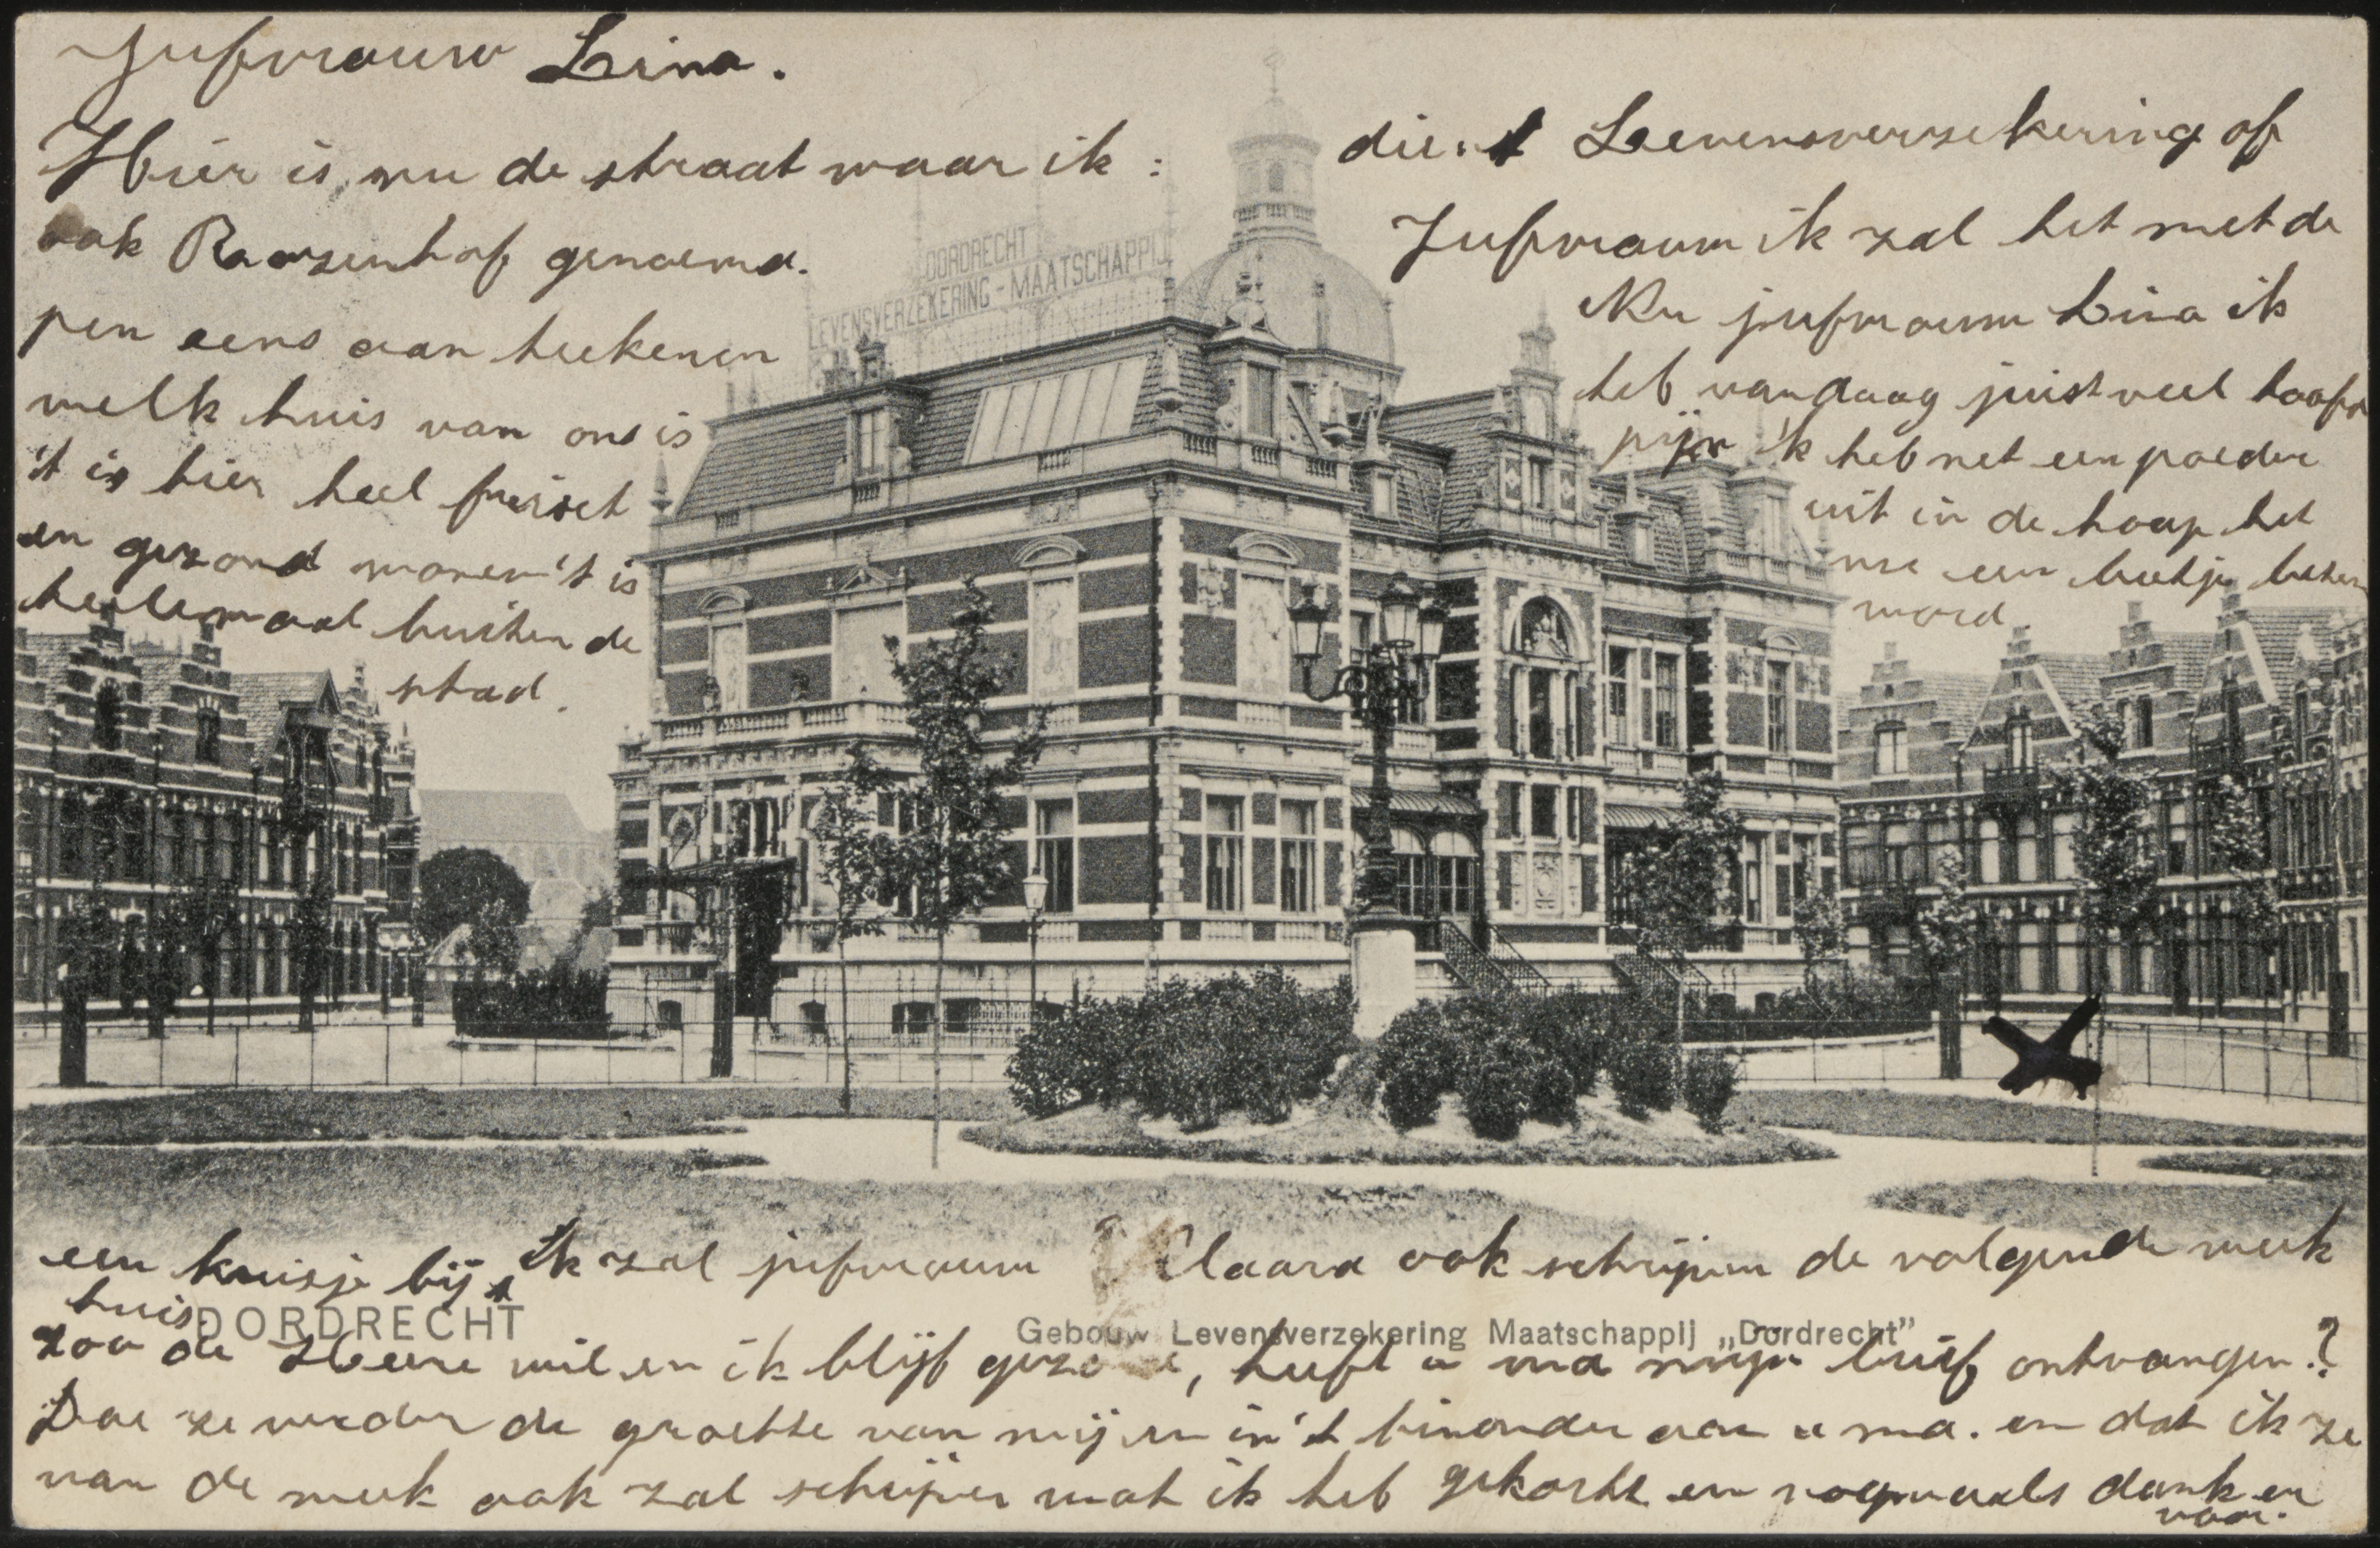 Jufvrouw Lina.
Hier is nu de straat waar ik :
ook Roozenhof genoemd.
pen eens aan teekenen
welk huis van ons is
't is hier heel frisch
en gezond wonen 't is
heelemaal buiten de
stad.
dient Levensverzekering of
Jufvrouw ik zal het met de
Nu jufvrouw Lina ik
heb vandaag juist veel hoofd
pijn ik heb net een poeder
uit in de hoop het
me een beetje beter
word.
DORDRECHT
LEVENSVERZEKERING-MAATSCHAPPIJ
een kruisje bij Ik zal jufvrouw Claara ook schrijven de volgende week
huis.
DORDRECHT
Gebouw Levensverzekering Maatschappij „Dordrecht"
zoo de Heere wil en ik blijf gezond, heeft u ma mijn brief ontvangen?
Doe ze verder de groette van mij en in't bizonder aan u ma. en dat ik ze
van de week ook zal schrijven wat ik heb gekocht en nogmaals dank er
voor.